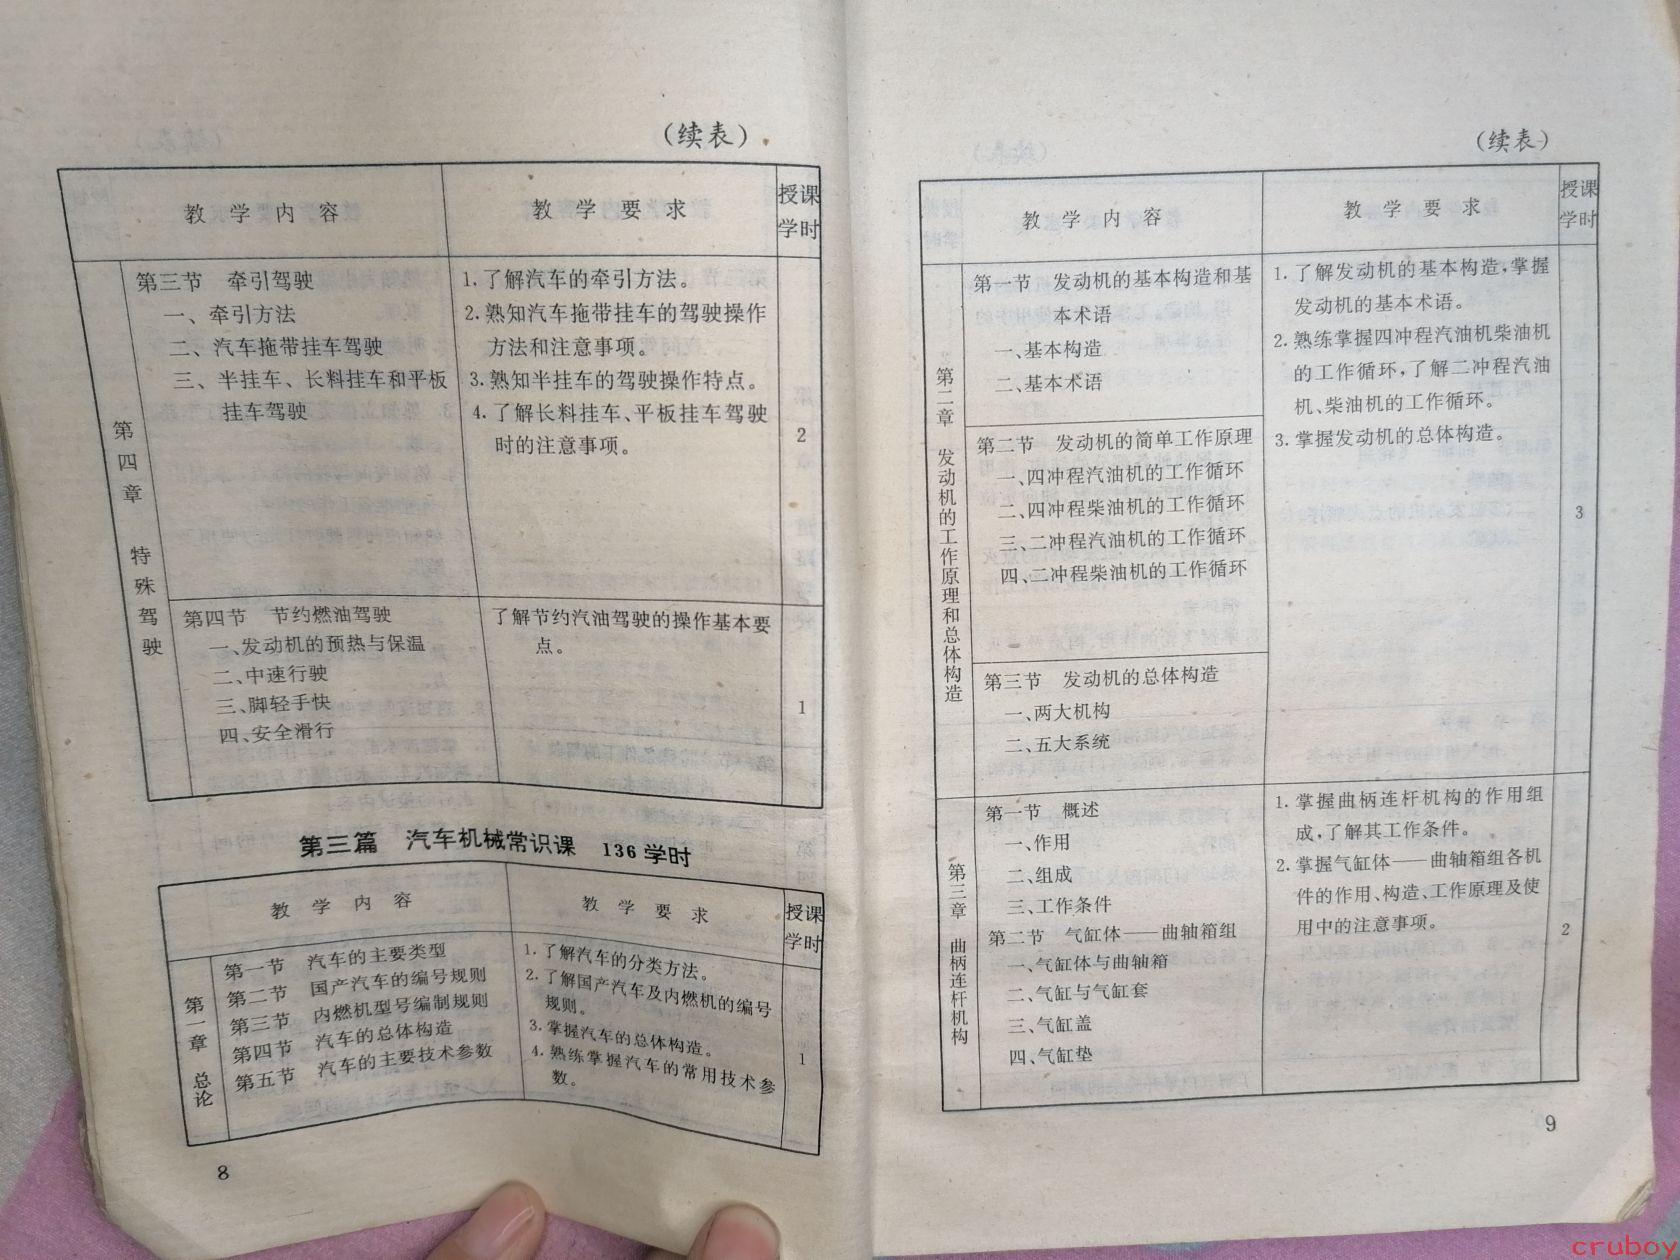 （续表）
教学内容
教学要求
授课
学时
第四章 特殊驾驶
第三节 牵引驾驶
一、牵引方法
二、汽车拖带挂车驾驶
三、半挂车、长料挂车和平板
挂车驾驶
1. 了解汽车的牵引方法。
2. 熟知汽车拖带挂车的驾驶操作
方法和注意事项。
3. 熟知半挂车的驾驶操作特点。
4. 了解长料挂车、平板挂车驾驶
时的注意事项。
2
第四节 节约燃油驾驶
一、发动机的预热与保温
二、中速行驶
三、脚轻手快
四、安全滑行
了解节约汽油驾驶的操作基本要
点。
1
第三篇 汽车机械常识课 136学时
教学内容
教学要求
授课
学时
第一章 总论
第一节 汽车的主要类型
第二节 国产汽车的编号规则
第三节 内燃机型号编制规则
第四节 汽车的总体构造
第五节 汽车的主要技术参数
1. 了解汽车的分类方法。
2. 了解国产汽车及内燃机的编号
规则。
3. 掌握汽车的总体构造。
4. 熟练掌握汽车的常用技术参
数。
1
8
（续表）
教学内容
教学要求
授课
学时
第二章 发动机的工作原理和总体构造
第一节 发动机的基本构造和基
本术语
一、基本构造
二、基本术语
第二节 发动机的简单工作原理
一、四冲程汽油机的工作循环
二、四冲程柴油机的工作循环
三、二冲程汽油机的工作循环
四、二冲程柴油机的工作循环
第三节 发动机的总体构造
一、两大机构
二、五大系统
1. 了解发动机的基本构造，掌握
发动机的基本术语。
2. 熟练掌握四冲程汽油机柴油机
的工作循环，了解二冲程汽油
机、柴油机的工作循环。
3. 掌握发动机的总体构造。
3
第三章 曲柄连杆机构
第一节 概述
一、作用
二、组成
三、工作条件
第二节 气缸体——曲轴箱组
一、气缸体与曲轴箱
二、气缸与气缸套
三、气缸盖
四、气缸垫
1. 掌握曲柄连杆机构的作用组
成，了解其工作条件。
2. 掌握气缸体——曲轴箱组各机
件的作用、构造、工作原理及使
用中的注意事项。
2
9
cruboy